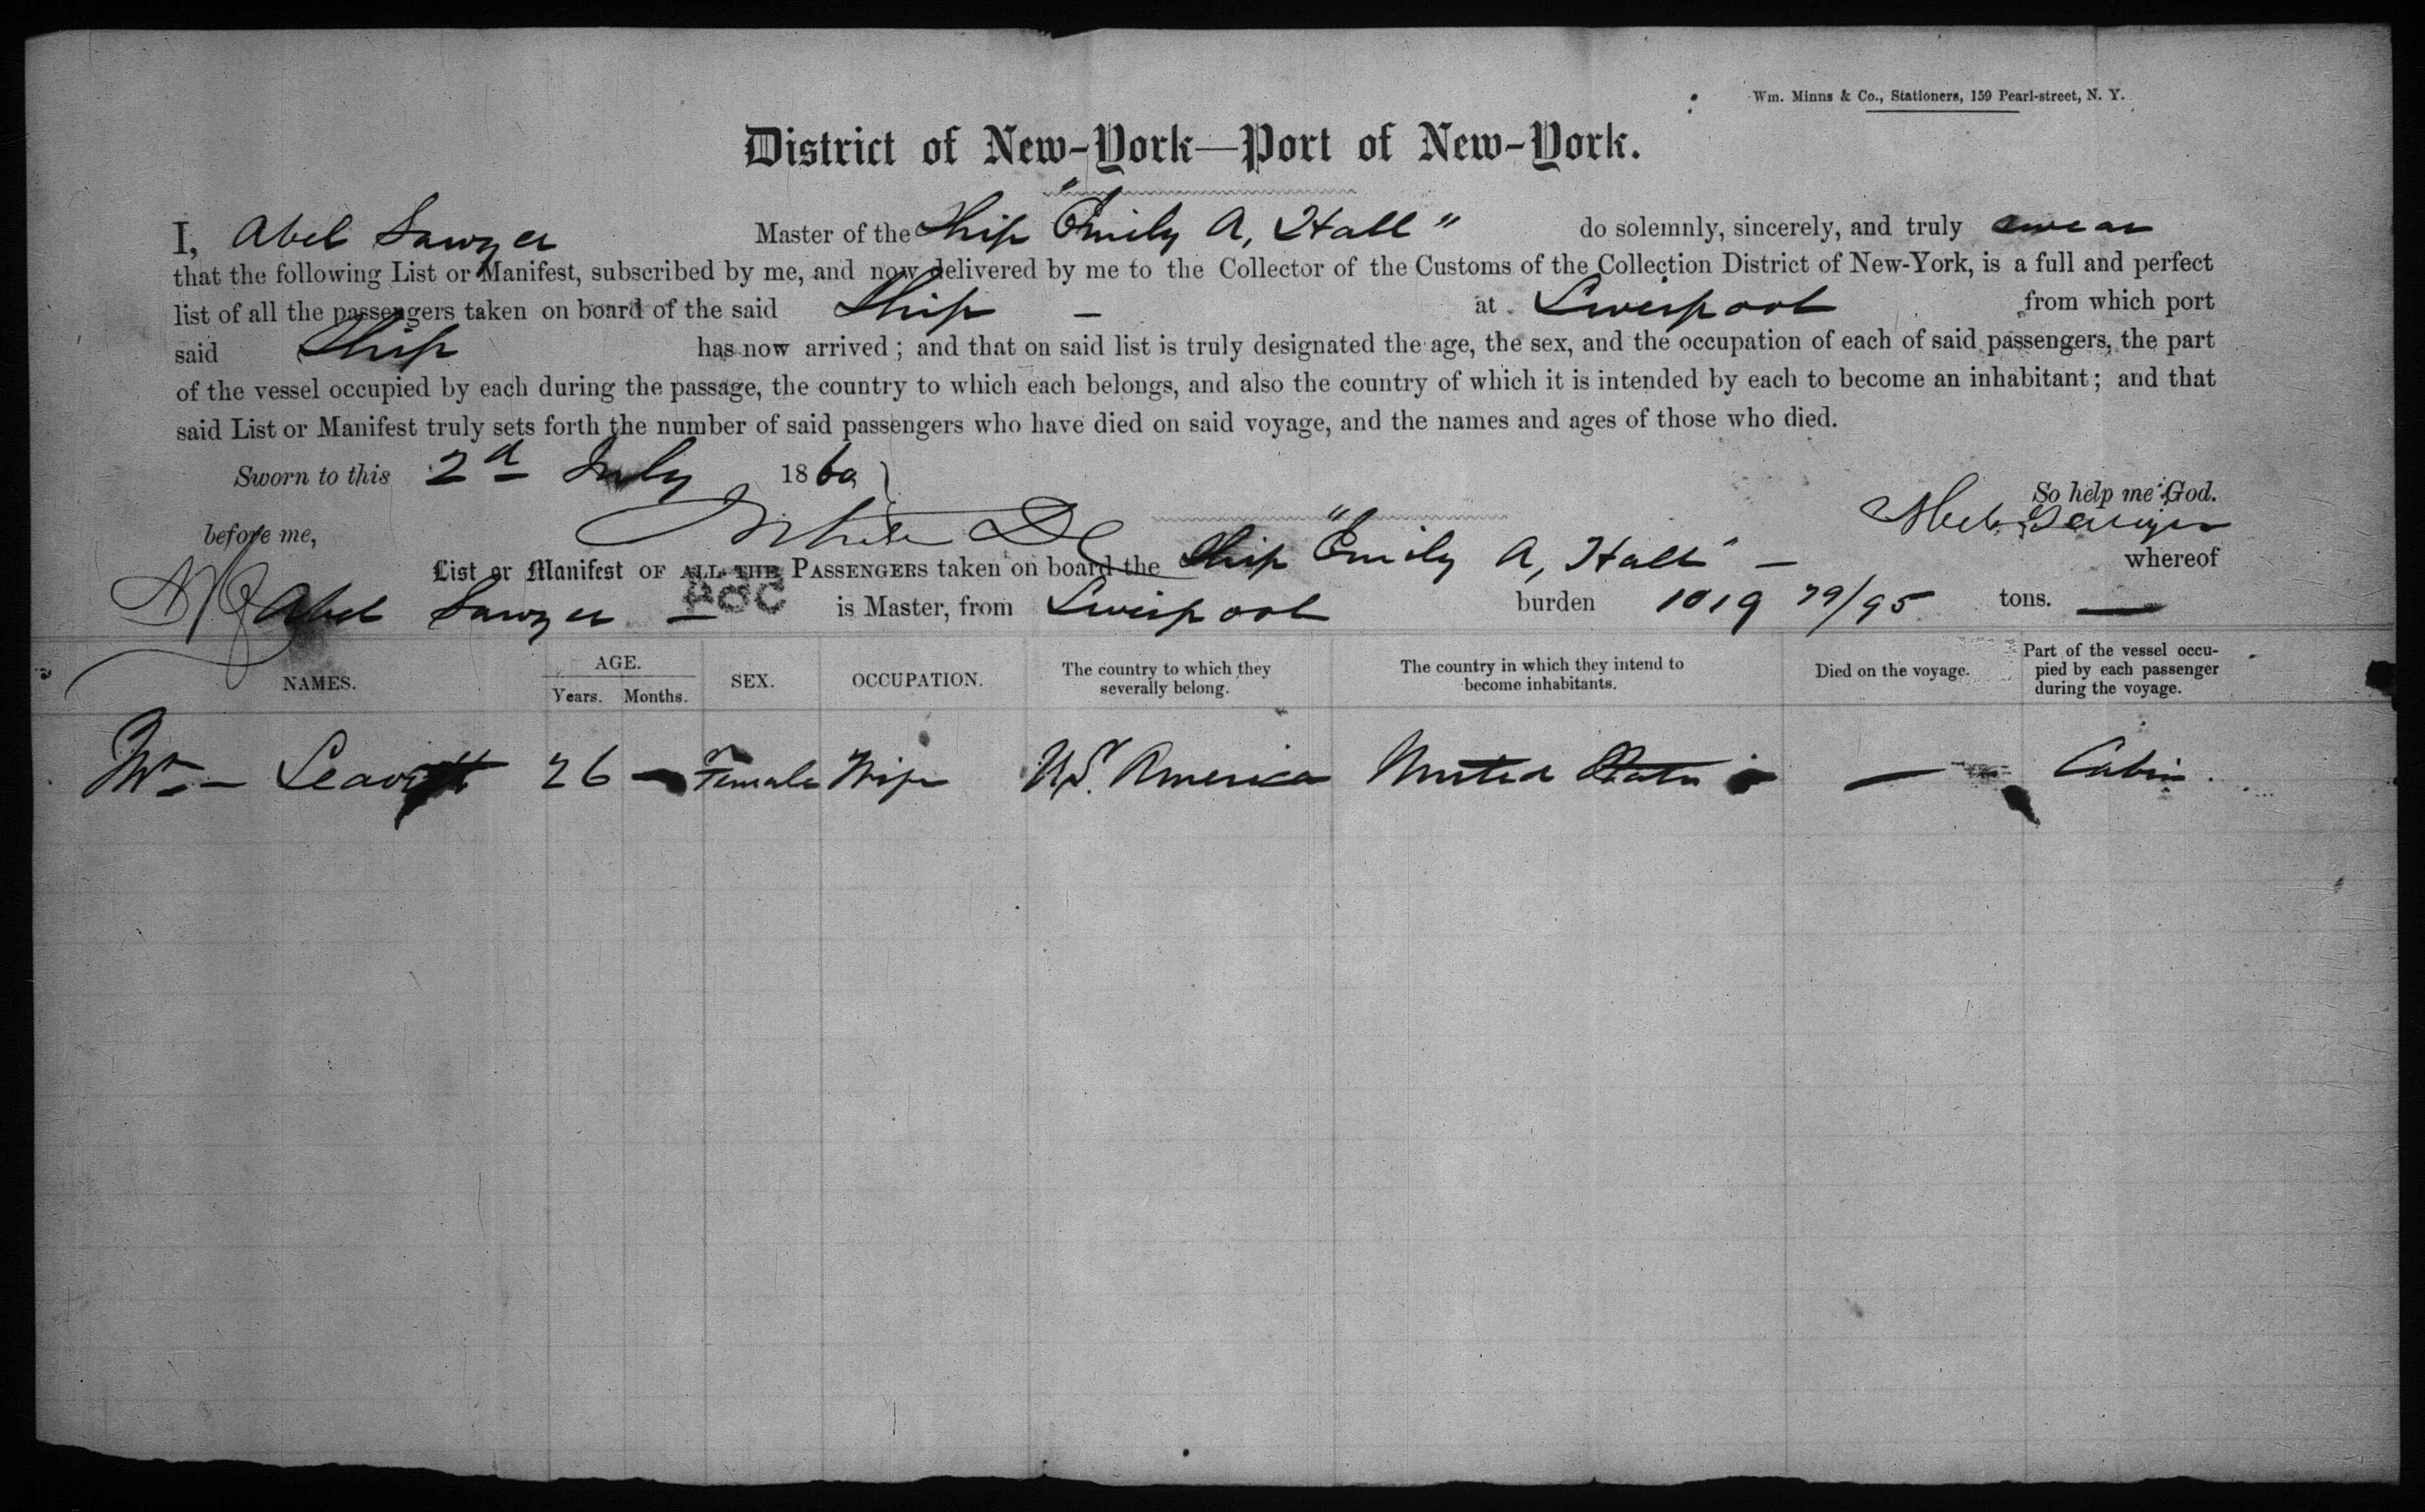 Wm. Minns & Co., Stationers, 159 Pearl-street, N. Y.
District of New-York—Port of New-York.
I, Abel Sawyer Master of the Ship "Emily A, Hall" do solemnly, sincerely, and truly swear
that the following List or Manifest, subscribed by me, and now delivered by me to the Collector of the Customs of the Collection District of New-York, is a full and perfect
list of all the passengers taken on board of the said Ship — at Liverpool from which port
said Ship has now arrived; and that on said list is truly designated the age, the sex, and the occupation of each of said passengers, the part
of the vessel occupied by each during the passage, the country to which each belongs, and also the country of which it is intended by each to become an inhabitant; and that
said List or Manifest truly sets forth the number of said passengers who have died on said voyage, and the names and ages of those who died.
Sworn to this 2d July 1860
So help me God.
before me, Abel Sawyer
List or Manifest OF ALL THE PASSENGERS taken on board the Ship "Emily A, Hall" — whereof
Abel Sawyer — is Master, from Liverpool burden 1019 79/95 tons. —
NAMES. AGE. Years. Months. SEX. OCCUPATION. The country to which they severally belong. The country in which they intend to become inhabitants. Died on the voyage. Part of the vessel occu-pied by each passenger during the voyage.
Mrs — Leavitt 26 — Female Wife US. America United States — Cabin